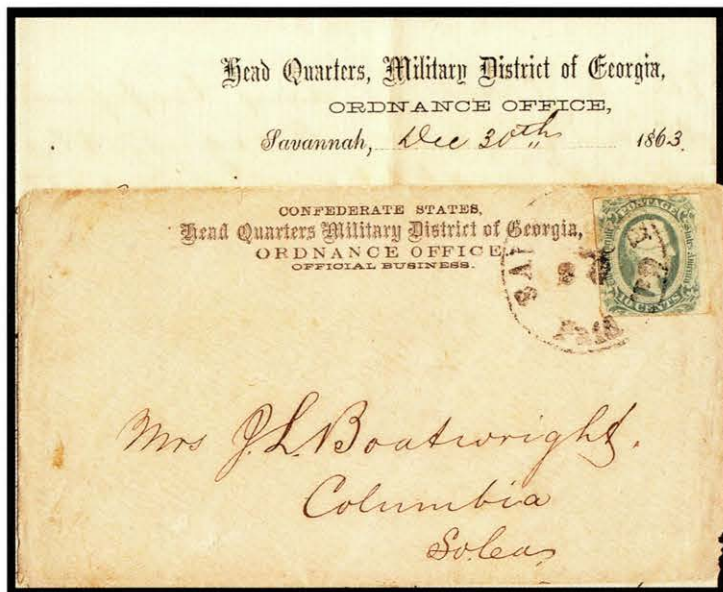 Head Quarters, Military District of Georgia,
ORDNANCE OFFICE,
Savannah, Dec 30th 1863.
CONFEDERATE STATES,
Head Quarters Military District of Georgia,
ORDNANCE OFFICE
OFFICIAL BUSINESS.
POSTAGE
TEN CENTS
Paid
Mrs J. L. Boatwright.
Columbia
So. Ca